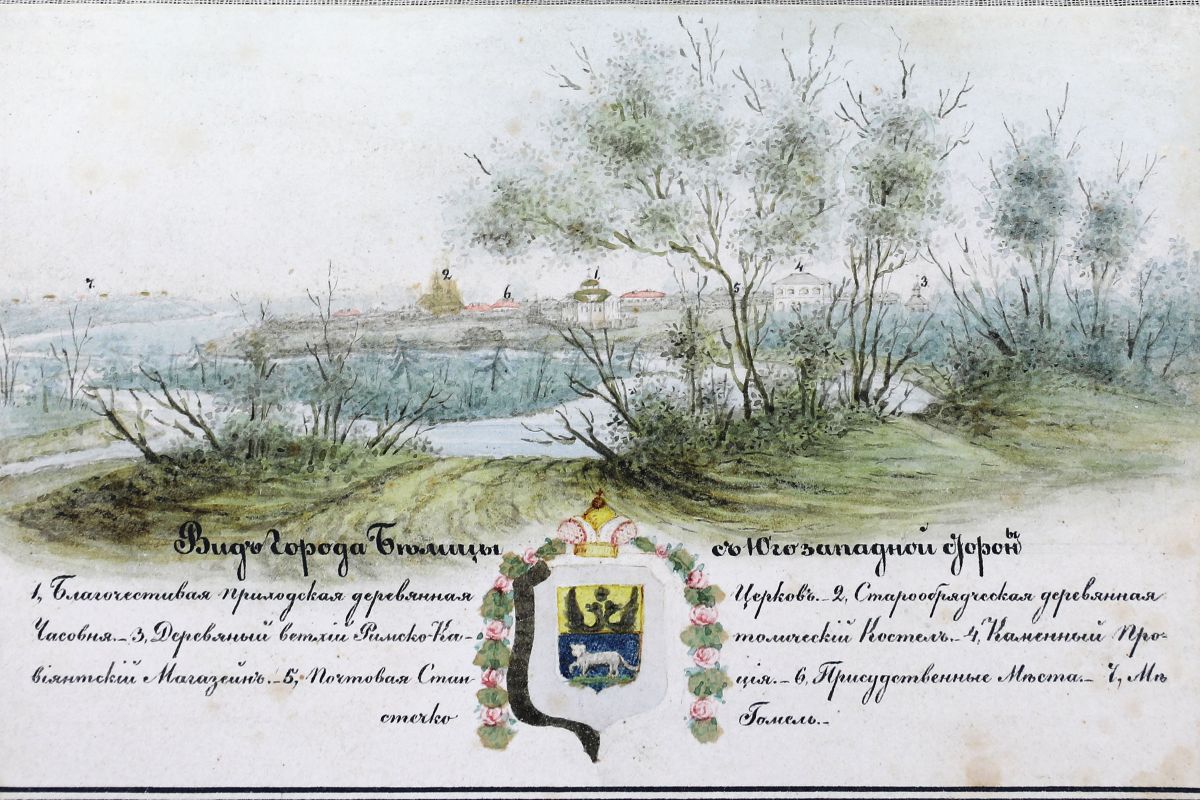 7.
2
6.
1,
5
4
3.
Видъ Города Бѣлицы съ Югозападной стороны
1, Благочестивая приходская деревянная Церковъ.- 2, Старообрядческая деревянная
Часовня.- 3, Деревяный ветхій Римско-Ка- толическій Костелъ.- 4, Каменный про-
віянтскій Магазейнъ.- 5, Почтовая Стан- ція.- 6, Присудственные Мѣста.- 7, Мѣ
стечко Гомель.-